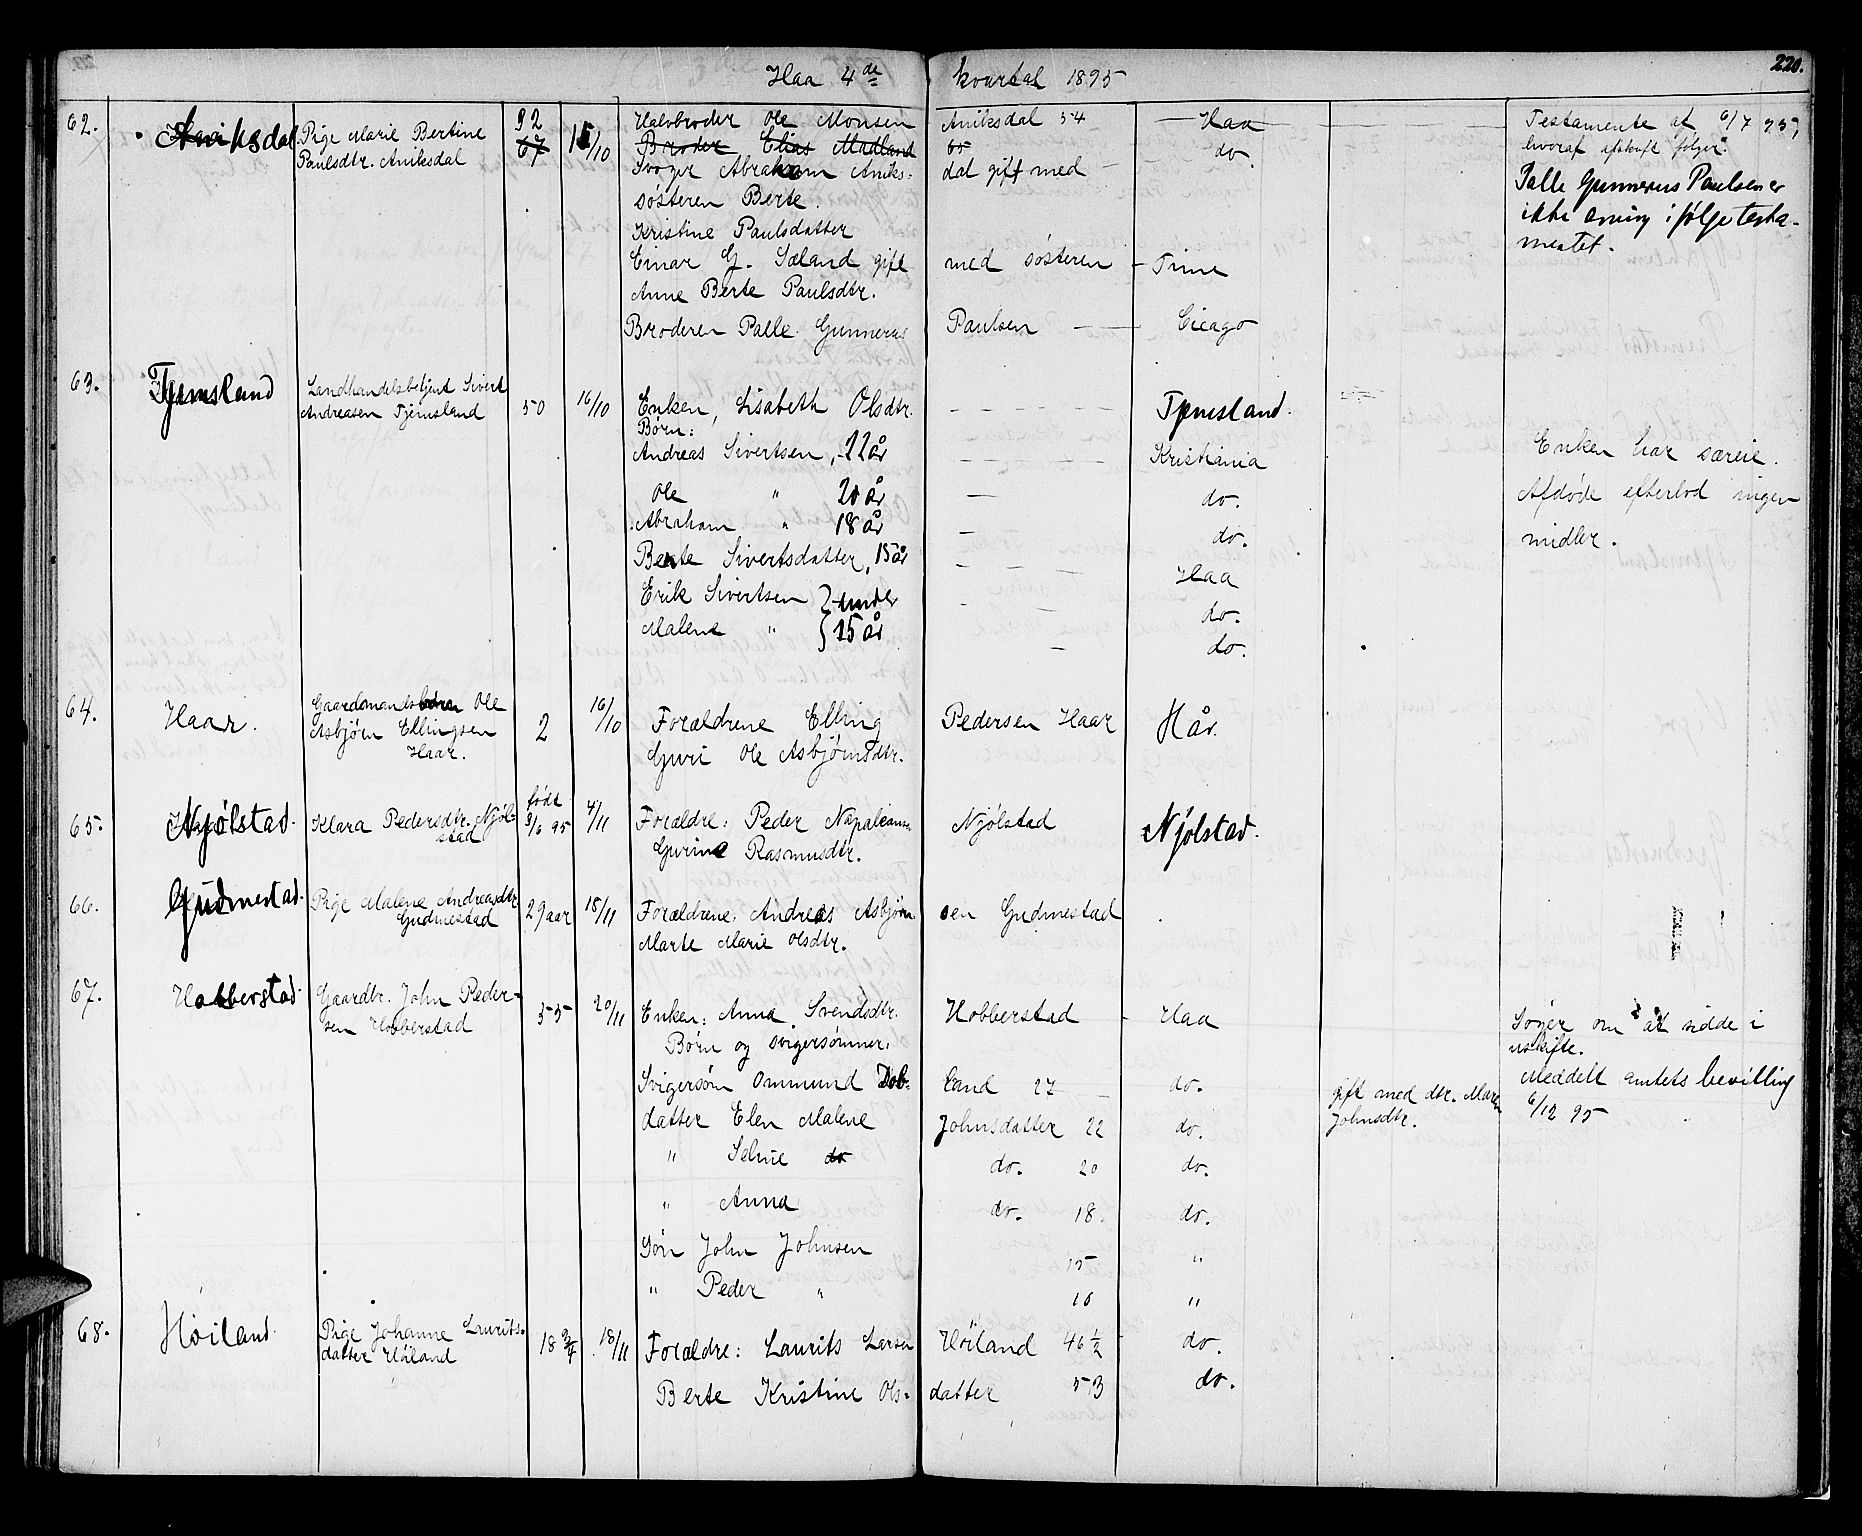 220.
Haa 4de kvartal 1895
62. Aniksdal. Pige Marie Bertine Paulsdtr. Aniksdal 32 67 15/10
Halvbroder Ole Monsen Aniksdal 54 — Haa
Broder Elias Madland 65 do.
Svoger Abraham Aniksdal gift med —
søsteren Berte.
Kristine Paulsdatter
Einar G. Sæland gift med søsteren — Time
Anne Berte Paulsdtr.
Broderen Palle Gunnerus Paulsen — Cicago
Testamente af 6/7 95,
hvoraf afskrift følger.
Palle Gunnerus Paulsen er
ikke arving i følge testa-
mentet.
63. Tjemsland Landhandelsbetjent Sivert
Andreasen Tjemsland 50 16/10
Enken, Lisabeth Olsdtr. - - - - Tjemsland.
Børn:
Andreas Sivertsen, 22 år - - - - Kristiania
Ole " 20 år — do.
Abraham " 18 år — do.
Berte Sivertsdatter, 15 år - - - - Haa
Erik Sivertsen } under - - do.
Malene " } 15 år - do.
Enken har særeie.
Afdøde efterlod ingen
midler.
64. Haar. Gaardmands Ole
Asbjørn Ellingsen
Haar. 2 16/10
Forældrene Elling Pedersen Haar Hår.
Guri Ole Asbjørnsdtr.
65. Njølstad. Klara Pedersdtr. Njøl-
stad født 3/6 95 4/11
Forældre: Peder Napoleons Njølstad Njølstad.
Gurine Rasmusdtr.
66. Gudmestad. Pige Malene Andreasdtr
Gudmestad 29 aar 18/11
Forældrene: Andreas Asbjørnsen Gudmestad
Marte Marie Olsdtr.
67. Hobberstad Gaardbr. John Peder-
sen Hobberstad 55 20/11
Enken: Anna Svendsdtr. Hobberstad - Haa
Børn og svigersønner:
Svigersøn Ommund Dob- land 27 — do.
gift med dtr. Maren
Johnsdtr.
datter Elen Malene Johnsdatter 22 do.
" Seline do do. 20 do.
" Anna do. 18. do.
Søn John Johnsen 15 "
" Peder " 10 "
Søger om at sidde i
uskifte.
Meddelt amtets bevilling
6/12 95
68. Høiland. Pige Johanne Laurits-
datter Høiland 18 3/4 18/11
Forældre: Laurits Larsen Høiland 46 1/2 do.
Berte Kristine Ols- datter 53 do.